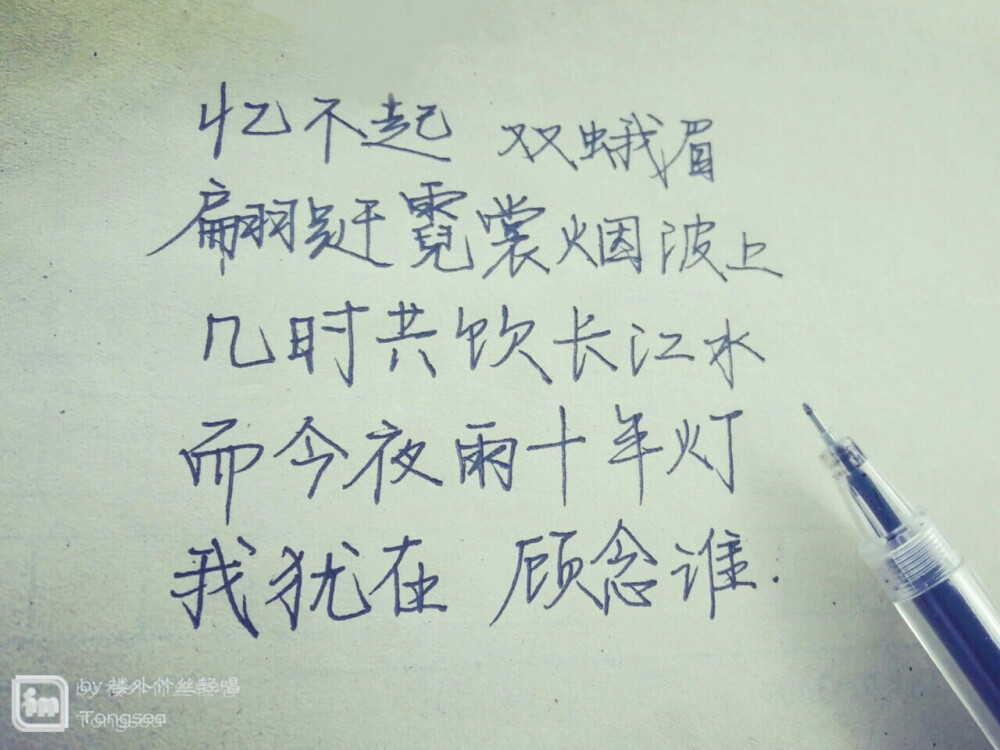 忆不起 双蛾眉
翩跹霓裳烟波上
几时共饮长江水
而今夜雨十年灯
我犹在 顾念谁.
in
by 楼外竹丝轻唱
Tongsea